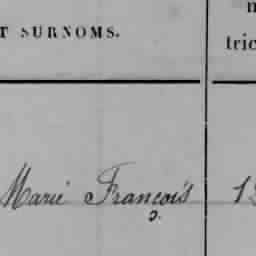 T SURNOMS.
tric
Marie François